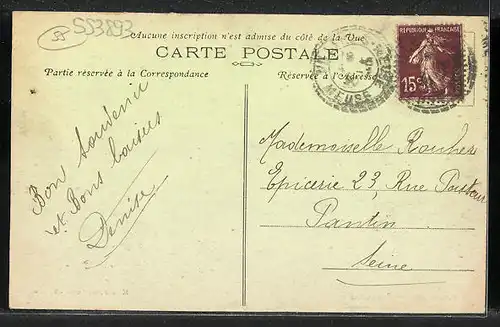 55
S53893
Aucune inscription n'est admise du côté de la Vue
CARTE POSTALE
Partie réservée à la Correspondance
Réservée à l'Adresse
RÉPUBLIQUE FRANÇAISE
15c
MEUSE
Bon Souvenir
et Bons baisers
Denise
Mademoiselle
Epicerie 23, Rue Pasteur
Pantin
Seine